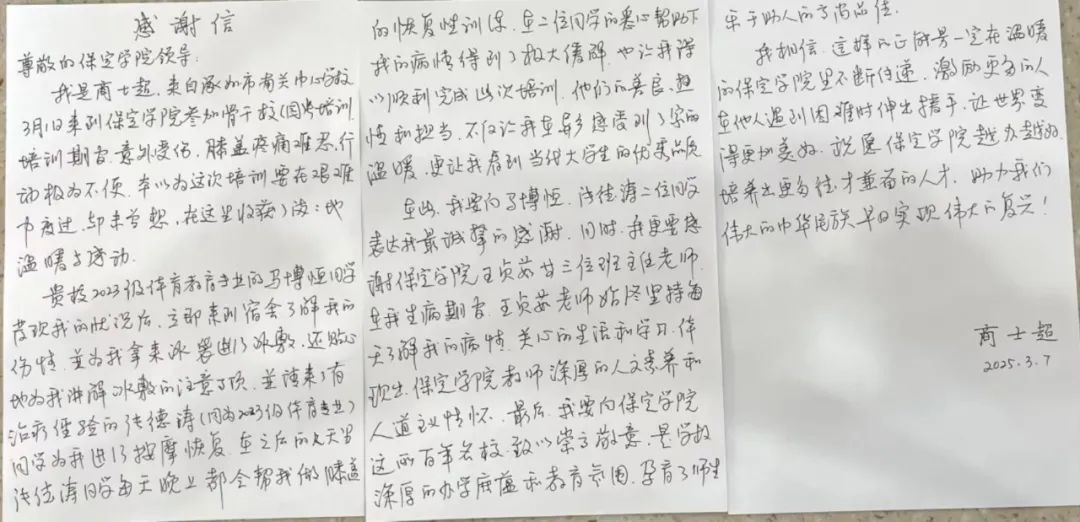 感谢信
尊敬的保定学院领导:
我是商士超,来自涿州市有关中心学校
3月1日来到保定学院参加骨干校(园)长培训
培训期间,意外受伤,膝盖疼痛难忍,行
动极为不便,本以为这次培训要在艰难
中度过,却未曾想,在这里收获了满满地
温暖与感动.
贵校2023级体育教育专业的马博恒同学
发现我的状况后,立即来到宿舍了解我的
伤情,並为我拿来冰袋进行冰敷,还贴心
地为我讲解冰敷的注意事项,並请来了有
治疗经验的佳德涛(同为2023级体育专业)
同学为我进行按摩恢复,在之后的几天里
佳涛同学每天晚上都会帮我做膝盖
的恢复性训练,在二位同学的悉心帮助下
我的病情得到了极大缓解,也让我得
以顺利完成此次培训,他们的善良,热
情和担当,不仅让我在异乡感受到了家的
温暖,更让我看到当代大学生的优秀品质
在此,我要向马博恒、佳涛二位同学
表达我最诚挚的感谢,同时,我更要感
谢保定学院王贞茹等三位班主任老师,
在我生病期间,王贞茹老师始终坚持每
天了解我的病情,关心的生活和学习,体
现出保定学院教师深厚的人文素养和
人道主义情怀、最后,我要向保定学院
这所百年名校,致以崇高敬意,是学校
深厚的办学底蕴和教育氛围,孕育了师生
乐于助人的高尚品德.
我相信,这样的正能量一定在温暖
的保定学院里不断传递,激励更多的人
在他人遇到困难时伸出援手,让世界变
得更加美好,祝愿保定学院越办越好,
培养出更多德才兼备的人才,助力我们
伟大的中华民族早日实现伟大的复兴!
商士超
2025.3.7